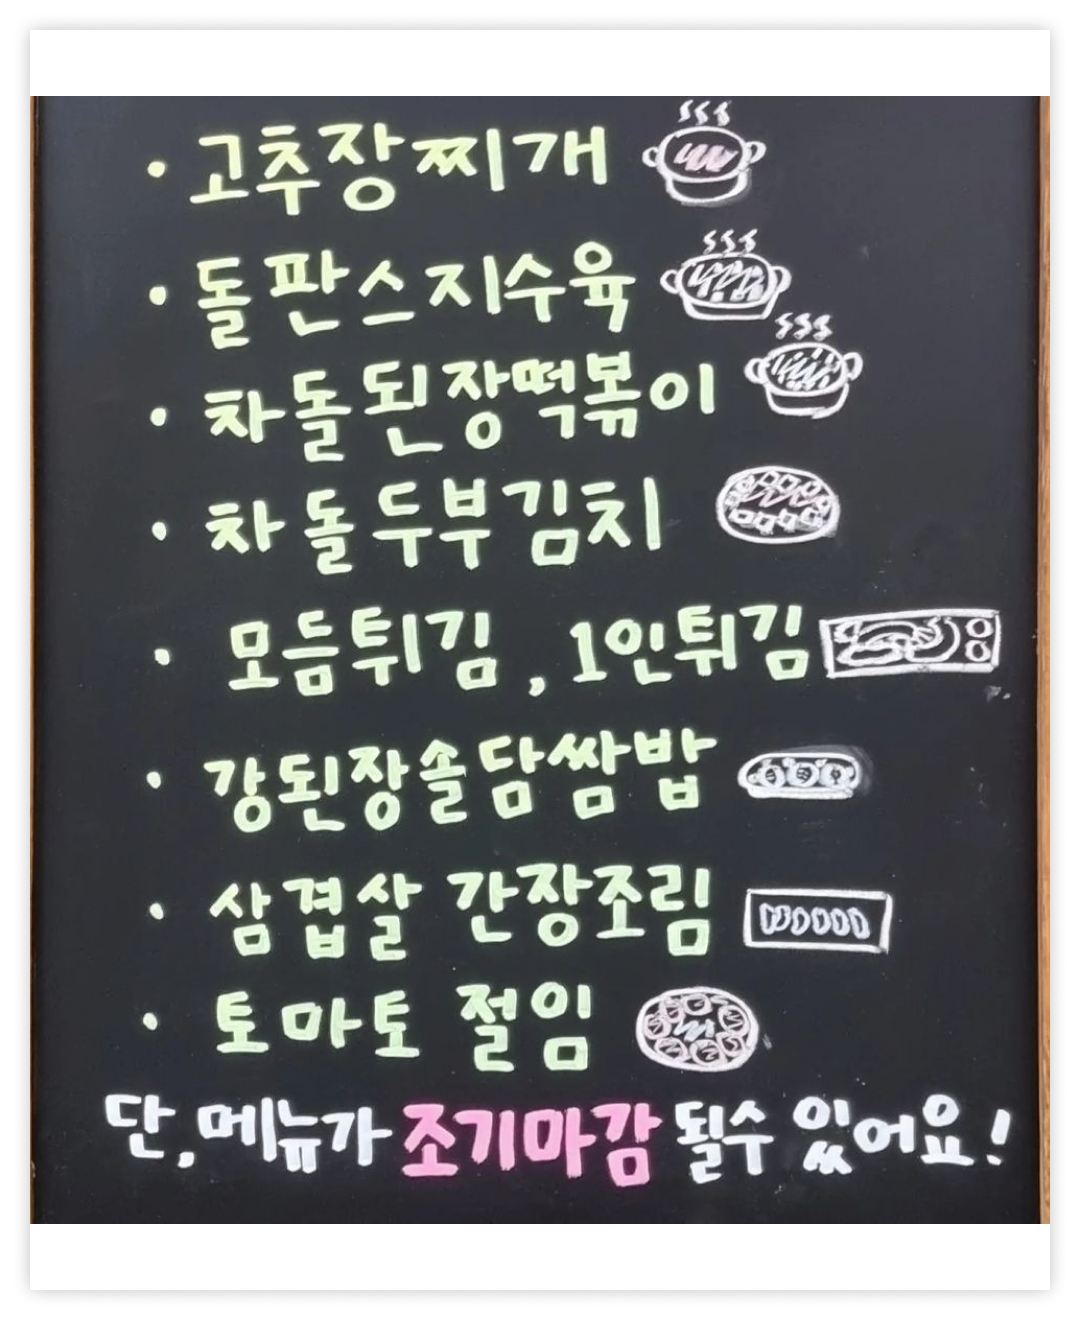 · 고추장찌개
· 돌판스지수육
· 차돌된장떡볶이
· 차돌두부김치
· 모듬튀김, 1인튀김
· 강된장솔담쌈밥
· 삼겹살 간장조림
· 토마토 절임
단, 메뉴가 조기마감 될수 있어요!